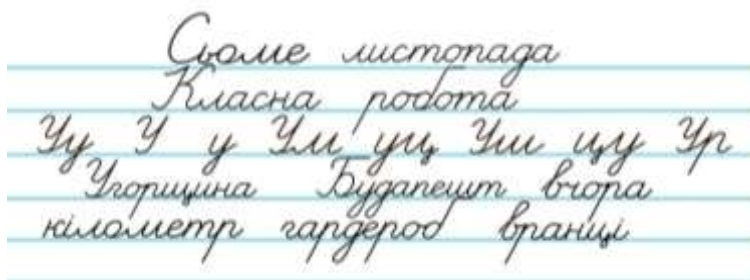 Сьоме листопада
Класна робота
Уу У у Ум уц Уш цу Ур
Угорщина Будапешт вчора
кілометр гардероб вранці